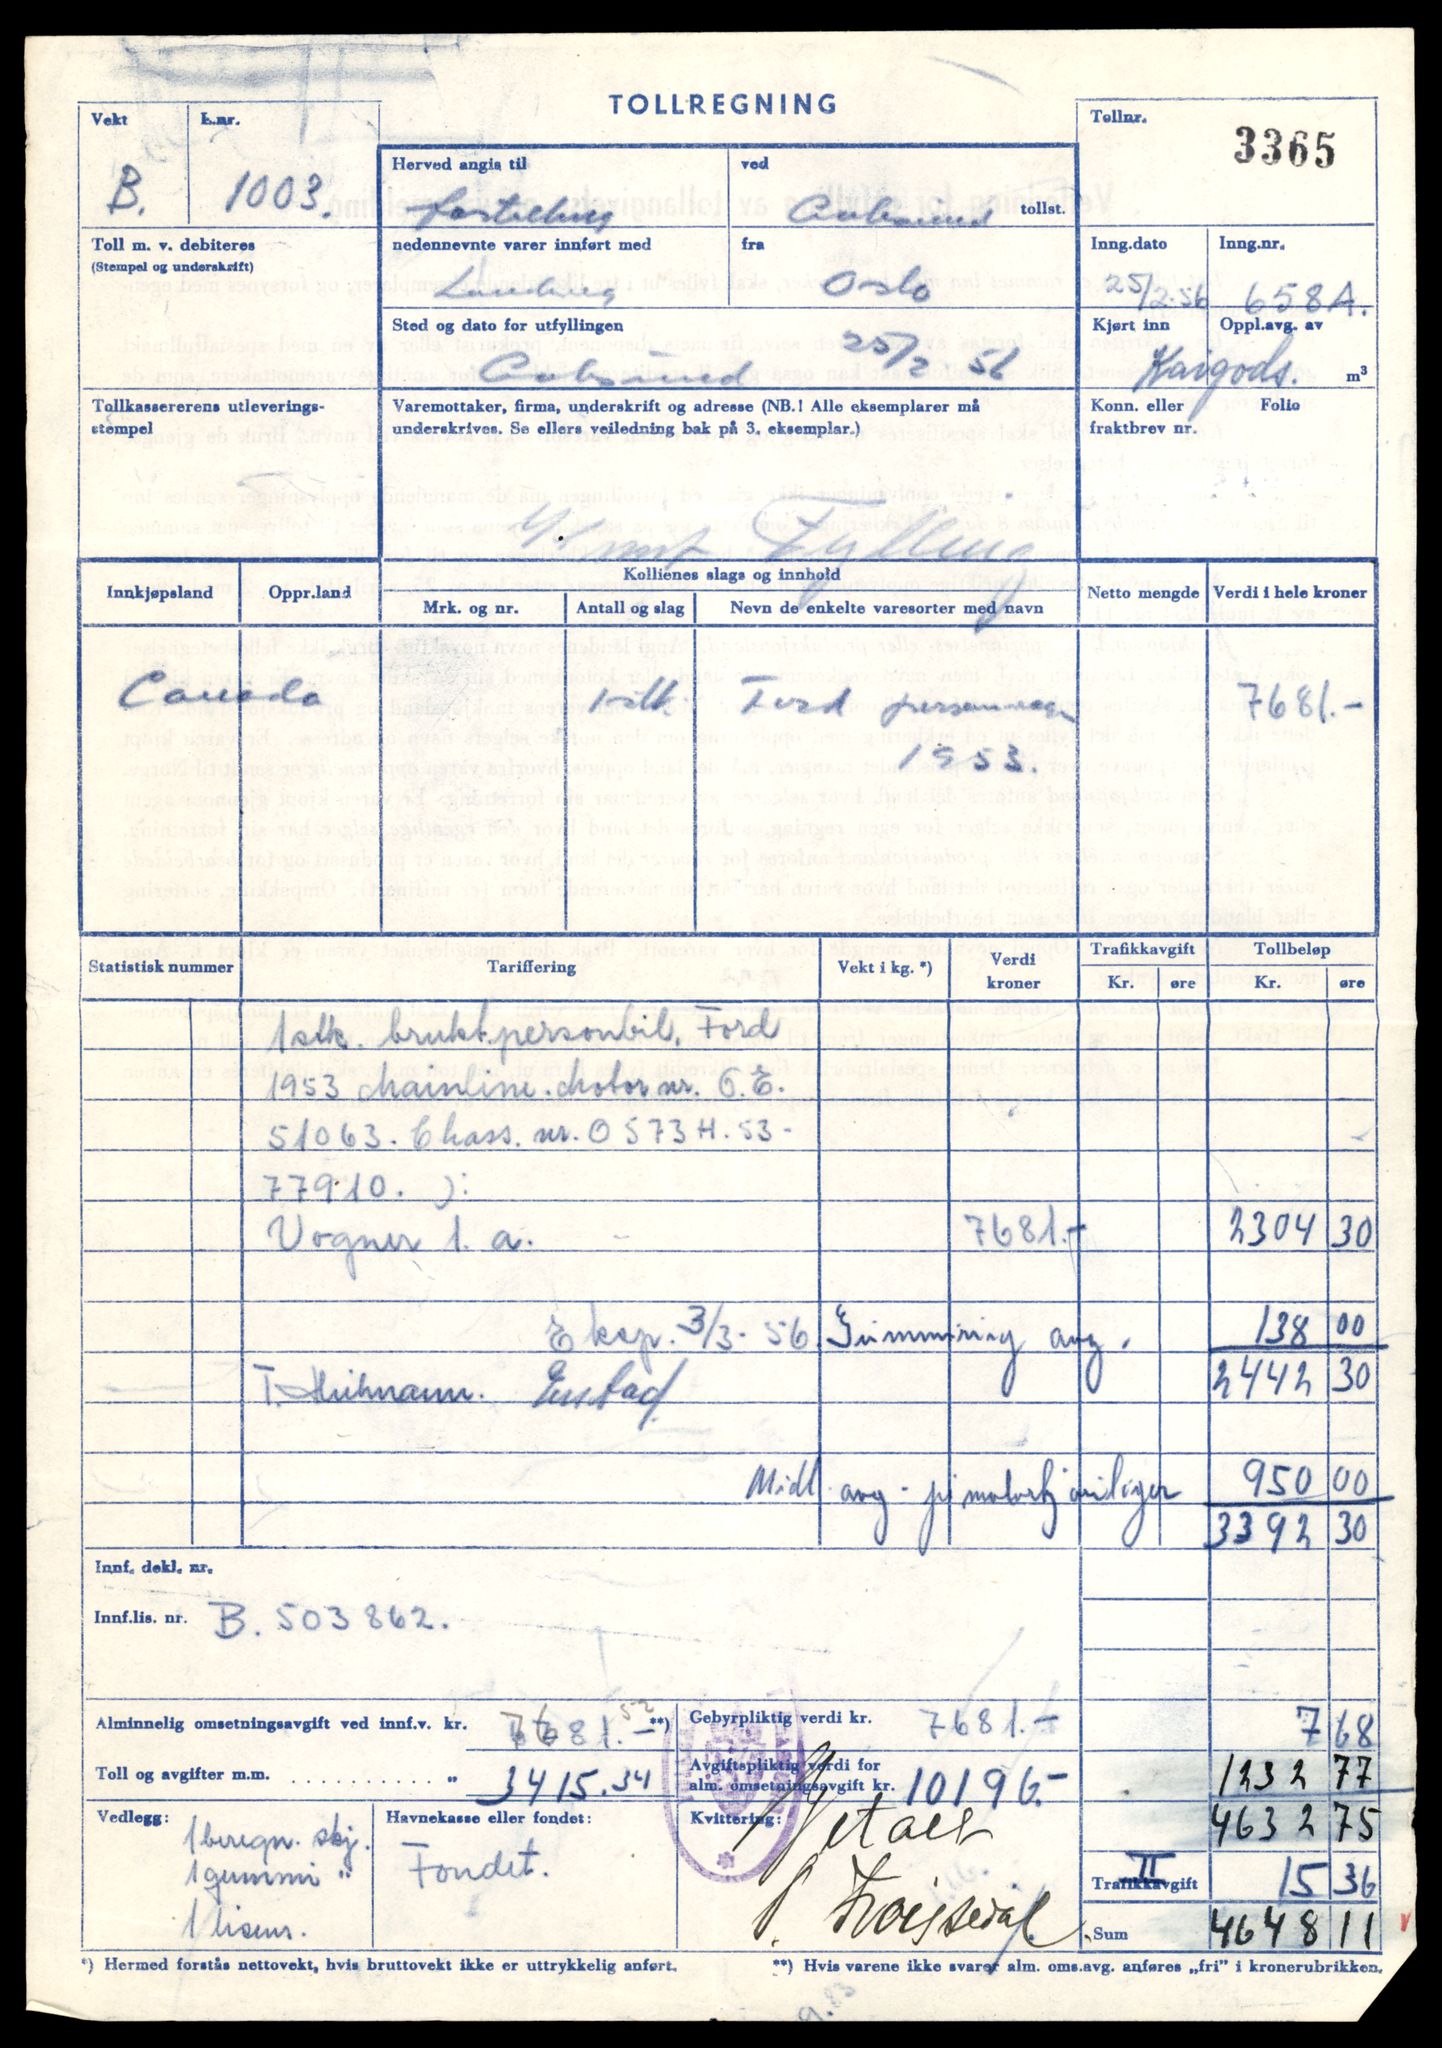 TOLLREGNING
Vekt
L.nr.
Tollnr.
3365
B.
1003.
Herved angis til
ved
tollst.
Toll m. v. debiteres
(Stempel og underskrift)
nedennevnte varer innført med
fra
Oslo
Inng.dato
Inng.nr.
25/2-56
658A.
Sted og dato for utfyllingen
25/2 56
Kjørt inn
Oppl.avg. av
Kaigods.
m³
Tollkassererens utleverings-
stempel
Varemottaker, firma, underskrift og adresse (NB.! Alle eksemplarer må
underskrives. Se ellers veiledning bak på 3. eksemplar.)
Konn. eller
fraktbrev nr.
Folio
Fylling
Innkjøpsland
Oppr.land
Kollienes slags og innhold
Mrk. og nr.
Antall og slag
Nevn de enkelte varesorter med navn
Netto mengde
Verdi i hele kroner
Canada
1 stk
Ford personvogn
7681.-
1953.
Statistisk nummer
Tariffering
Vekt i kg. *)
Verdi
kroner
Trafikkavgift
Kr.
øre
Tollbeløp
Kr.
øre
1 stk. brukt personbil, Ford
1953 Mainline. Motor nr. O.E.
51063. Chass. nr. O573H.53-
77910. ):
Vogner 1. a.
7681.-
2304 30
Eksp. 3/3-56.
Gummiring avg.
138 00
2442 30
Midl. avg. på motorkjøretøyer
950 00
3392 30
Innf. dekl. nr.
Innf.lis. nr. B. 503862.
Alminnelig omsetningsavgift ved innf.v. kr.
**)
Gebyrpliktig verdi kr. 7681.-
7 68
Toll og avgifter m.m. . . . . . . . . . . . „ 3415.34
Avgiftspliktig verdi for
alm. omsetningsavgift kr. 10196.-
1232 77
4632 75
Vedlegg:
1 beregn. skj.
1 gummi "
1 lisens.
Havnekasse eller fondet:
Fondet.
Kvittering:
Betalt
II
Trafikkavgift
15 36
Sum
4648 11
*) Hermed forstås nettovekt, hvis bruttovekt ikke er uttrykkelig anført.
**) Hvis varene ikke svarer alm. oms.avg. anføres „fri" i kronerubrikken.